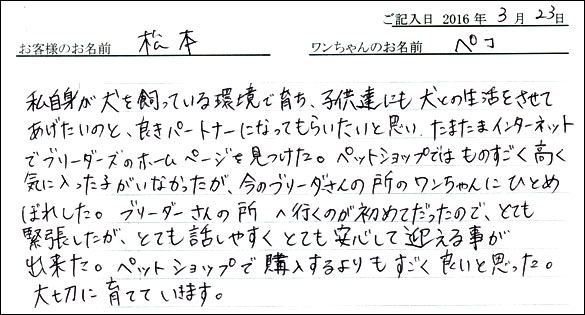 ご記入日 2016年 3月 23日
お客様のお名前 松本 ワンちゃんのお名前 ペコ
私自身が犬を飼っている環境で育ち、子供達にも犬との生活をさせて
あげたいのと、良きパートナーになってもらいたいと思い、たまたまインターネット
でブリーダーズのホームページを見つけた。ペットショップではものすごく高く
気に入った子がいなかったが、今のブリーダさんの所のワンちゃんにひとめ
ぼれした。ブリーダーさんの所へ行くのが初めてだったので、とても
緊張したが、とても話しやすくとても安心して迎える事が
出来た。ペットショップで購入するよりもすごく良いと思った。
大切に育てていきます。